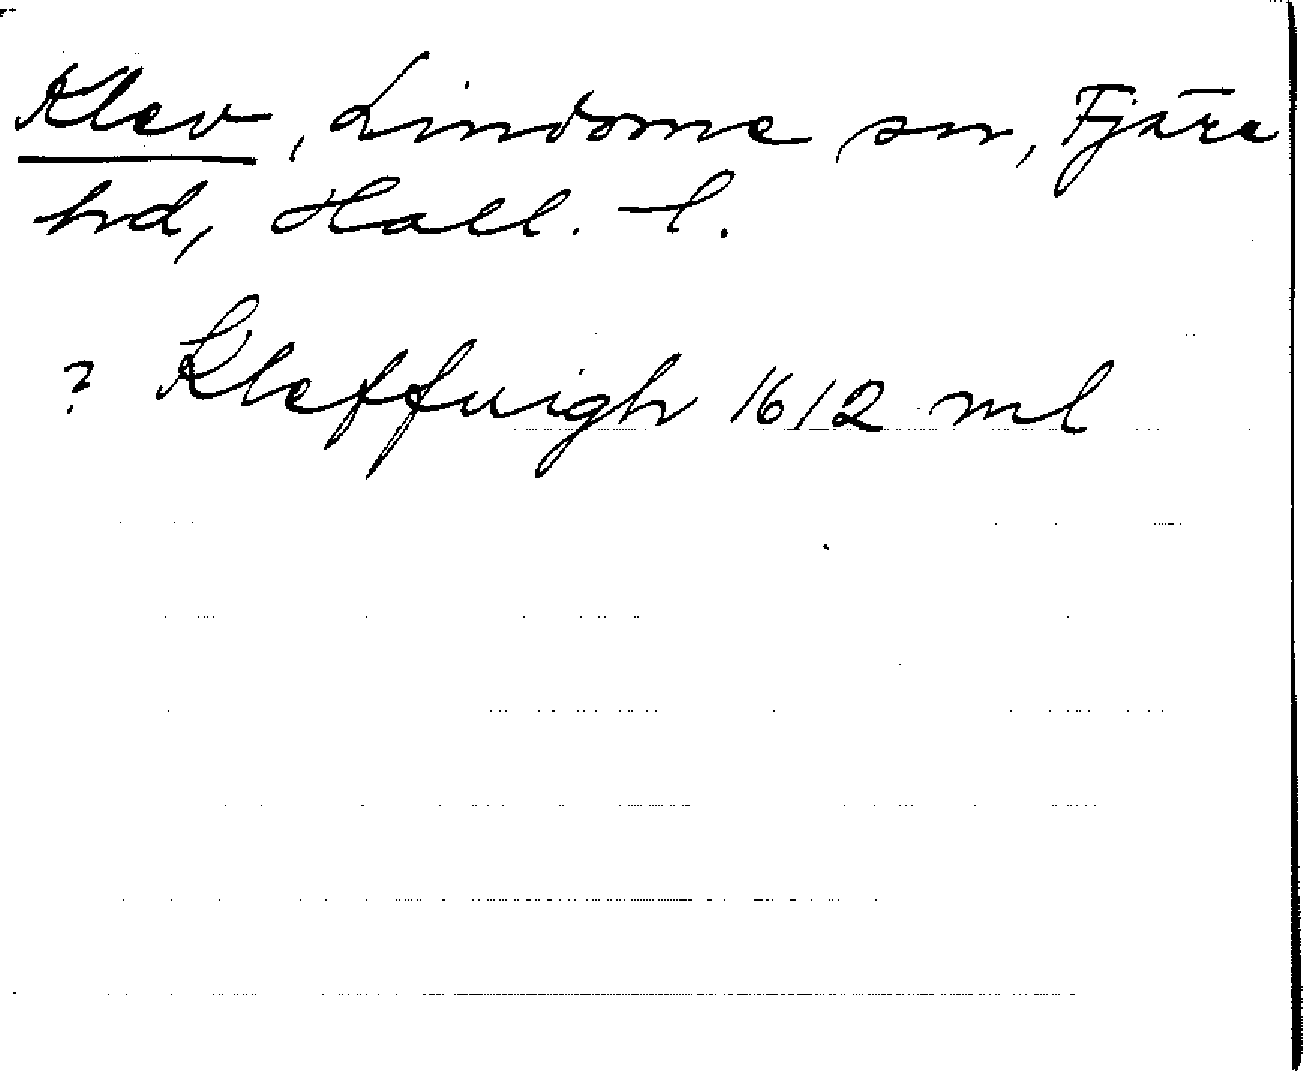 Klev, Lindome sn, Fjäre
hd, Hall. l.
? Kleffuigh 1612 ml